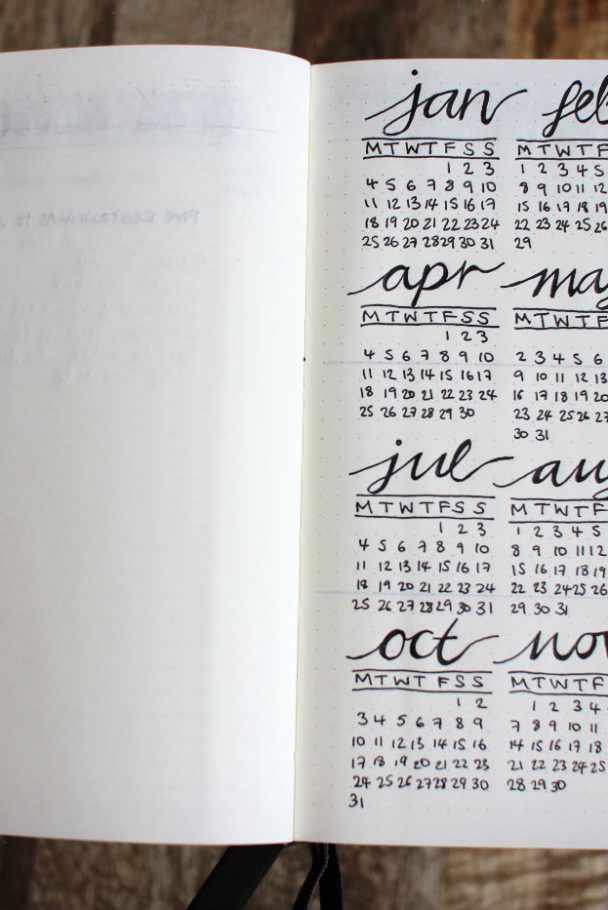 jan
M T W T F S S
1 2 3
4 5 6 7 8 9 10
11 12 13 14 15 16 17
18 19 20 21 22 23 24
25 26 27 28 29 30 31
feb
M T W T F
1 2 3 4 5
8 9 10 11 12
15 16 17 18 19
22 23 24 25 26
29
apr
M T W T F S S
1 2 3
4 5 6 7 8 9 10
11 12 13 14 15 16 17
18 19 20 21 22 23 24
25 26 27 28 29 30
may
M T W T F
2 3 4 5 6
9 10 11 12 13
16 17 18 19 20
23 24 25 26 27
30 31
jul
M T W T F S S
1 2 3
4 5 6 7 8 9 10
11 12 13 14 15 16 17
18 19 20 21 22 23 24
25 26 27 28 29 30 31
aug
M T W T F
1 2 3 4 5
8 9 10 11 12
15 16 17 18 19
22 23 24 25 26
29 30 31
oct
M T W T F S S
1 2
3 4 5 6 7 8 9
10 11 12 13 14 15 16
17 18 19 20 21 22 23
24 25 26 27 28 29 30
31
nov
M T W T F
1 2 3 4
7 8 9 10 11
14 15 16 17 18
21 22 23 24 25
28 29 30